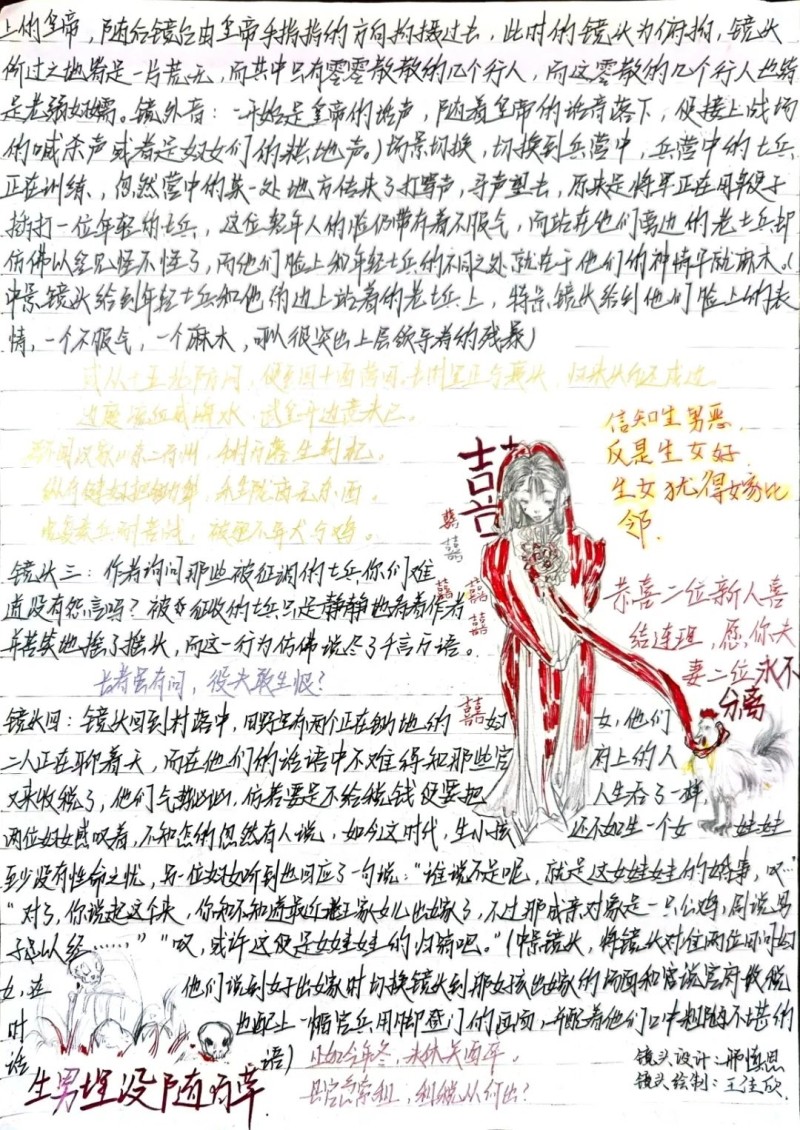 上的皇帝，随后镜头由皇帝手指指的方向拍摄过去，此时的镜头为俯拍，镜头
俯过之地皆是一片荒芜，而其中只有零零散散的几个行人，而这零散的几个行人也皆
是老弱妇孺。镜外音：一开始是皇帝的话声，随着皇帝的话音落下，便接上战场
的喊杀声或者是妇女们的耕地声。）场景切换，切换到兵营中，兵营中的士兵
正在训练，忽然营中的某一处地方传来了打骂声，寻声望去，原来是将军正在用鞭子
抽打一位年轻的士兵，这位年轻人的脸仍带有着不服气，而站在他们旁边的老士兵却
仿佛以经见怪不怪了，而他们脸上和年轻士兵的不同之处就在于他们的神情平就麻木。（
中景镜头给到年轻士兵和他的边上站着的老士兵上，特景镜头给到他们脸上的表
情，一个不服气，一个麻木，可以很突出上层领导者的残暴）
或从十五北防河，便至四十西营田。去时里正与裹头，归来头白还戍边。
边庭流血成海水，武皇开边意未已。
君不闻汉家山东二百州，千村万落生荆杞。
纵有健妇把锄犁，禾生陇亩无东西。
况复秦兵耐苦战，被驱不异犬与鸡。
信知生男恶，
反是生女好
生女犹得嫁比
邻.
囍
镜头三：作者询问那些被征调的士兵你们难
道没有怨言吗？被征收的士兵只是静静地看着作者
并苦笑地摇了摇头，而这一行为仿佛说尽了千言万语。
长者虽有问，役夫敢申恨？
恭喜二位新人喜
结连理，愿，你夫
妻二位永不
分离
镜头四：镜头回到村落中，田野里有两个正在锄地的妇女，他们
二人正在聊着天，而在他们的话语中不难得知那些官府上的人
又来收税了，他们气势汹汹，仿若要是不给税钱便要把人生吞了一样，
两位妇女感叹着，不知怎的忽然有人说，如今这时代，生小孩还不如生一个女娃娃
至少没有性命之忧，另一位妇女听到也回应了一句说：“谁说不是呢，就是这女娃娃的婚事，叹…”
“对了，你说起这个来，你知不知道最近老王家女儿出嫁了，不过那成亲对象是一只公鸡，周说男
子已以经……”“叹，或许这便是女娃娃的归宿吧。”（中景镜头，将镜头对准两位田间妇
女，在他们说到女子出嫁时切换镜头到那女孩出嫁的场面和官说官府收税
时也配上一幅官兵用脚登门的画面，并配着他们口中粗鄙不堪的
话语）
且如今年冬，未休关西卒。
县官急索租，租税从何出？
生男埋没随百草
镜头设计：邢慎思
镜头绘制：王佳欣